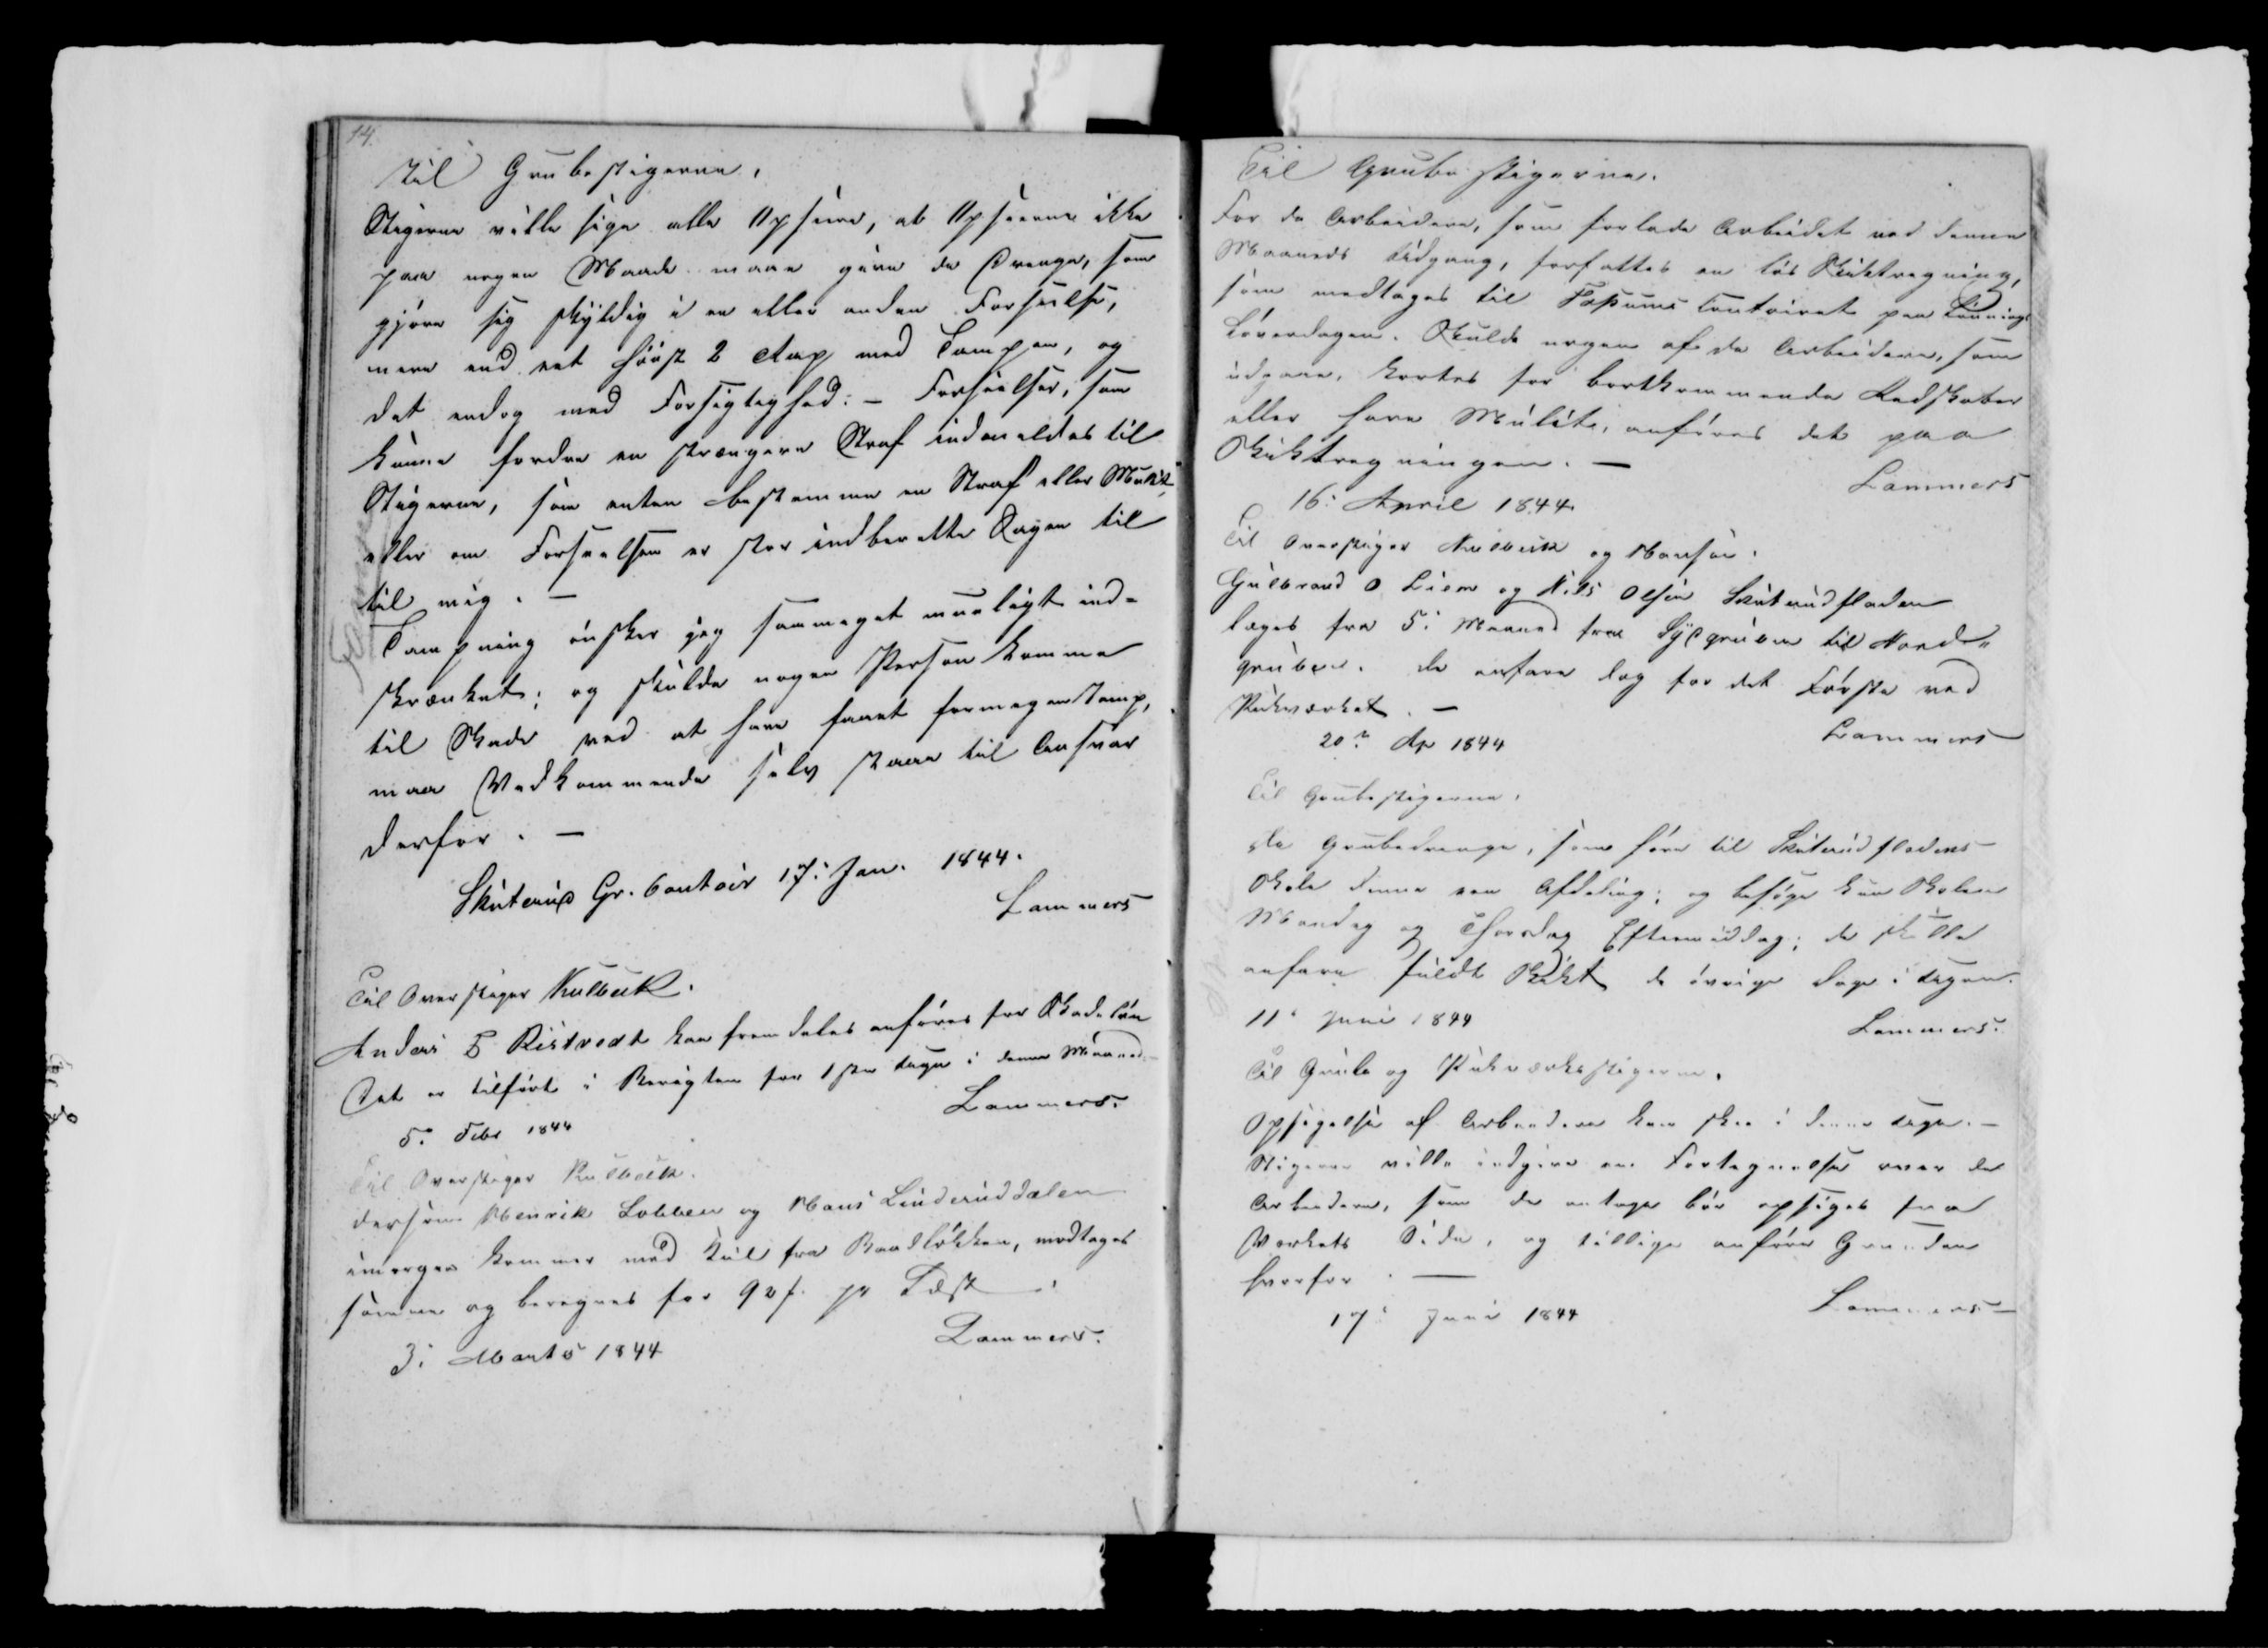 14.
Til Grubestigerne,
Stigerne ville sige alle Opseere, at Opseerne ikke
paa nogen Maade maae give de Drenge, som
gjøre sig skyldig i en eller anden Forseelse,
mere end eet høist 2 Rap med Tampen, og
det endog med Forsigtighed: – Forseelser, som
kunne fordre en strængere Straf indmeldes til
Stigerne, som enten bestemme en Straf eller Mulkt,
eller om Forseelsen er stor indberette Sagen til
til mig. –
Tampning ønsker jeg saameget mueligt ind-
skrænket; og skulde nogen Person komme
til Skade ved at have faaet formegen Tamp,
maa Vedkommende selv staae til Ansvar
derfor. –
Skuterud Gr. Contoir 17: Jan. 1844.
Lammers
Til Overstiger Kulbeck.
Anders Ristvedt kan fremdeles anføres for Skadeløn
Det er tilført i Rapporten for 1ste Uge i denne Maaned. –
Lammers.
5: Febr 1844
Til Overstiger Kulbeck.
dersom Henrik Lobben og Hans Linderuddalen
imorgen kommer med Kul fra Baadløkken, modtages
samme og beregnes for 92 f. pr Læst.
Lammers.
3: Marts 1844
Til Grubestigerne.
For de Arbeidere, som forlade Arbeidet ved denne
Maaneds Udgang, forfattes en løs Skiktregning,
som medtages til Fossums Contoiret paa Lønnings
Løverdagen. Skulde nogen af de Arbeidere, som
udgaae, kortes for bortkommende Redskaber
eller have Mulkt, anføres det paa
Skiktregningen. –
Lammers
16: April 1844.
Til Overstiger Kulbeck og Hansen.
Gulbrand O Lien og Nils Olsen Skuterudfladen
læges fra 5: Maaned fra Sydgruben til Nord-
gruben. de anfare dog for det Første ved
Pukværket. –
20: Ap 1844
Lammers
Til Grubestigerne.
de Grubedrenge, som høre til Skuterudfladens
Skole danne een Afdeling; og besøge kun Skolen
Mandag og Thorsdag Eftermiddag; de skulle
anfare fuldt Skikt de øvrige Dage i Ugen.
11: Juni 1844
Lammers.
Til Grube og Pukværksstigerne.
Opsigelse af Arbeidere kan skee i denne Uge. –
Stigerne ville indgive en Fortegnelse over de
Arbeidere, som de antage bør opsiges fra
Værkets Side, og tillige anføre Grunden
hvorfor. –
17: Juni 1844
Lammers –